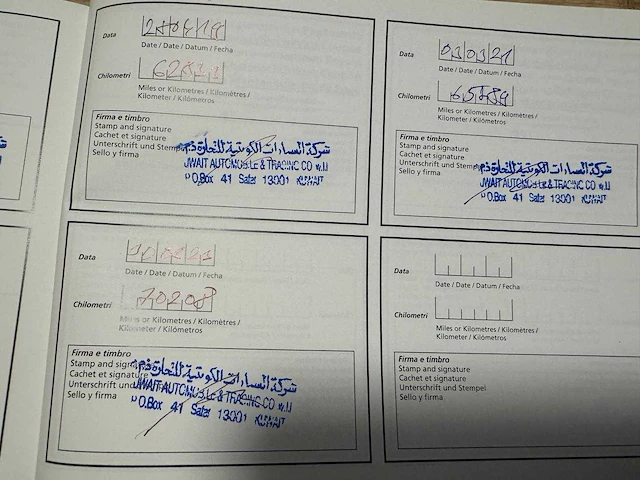 Data
Date / Date / Datum / Fecha
Chilometri
Miles or Kilometres / Kilomètres /
Kilometer / Kilómetros
Firma e timbro
Stamp and signature
Cachet et signature
Unterschrift und Stempel
Sello y firma
شركة السيارات الكويتية للتجارة ذ.م.م
KUWAIT AUTOMOBILE & TRADING CO W.L.L
P.O.Box 41 Safat 13001 KUWAIT
Data 03 03 21
Date / Date / Datum / Fecha
Chilometri 65489
Miles or Kilometres / Kilomètres /
Kilometer / Kilómetros
Firma e timbro
Stamp and signature
Cachet et signature
Unterschrift und Stempel
Sello y firma
شركة السيارات الكويتية للتجارة ذ.م.م
KUWAIT AUTOMOBILE & TRADING CO W.L.L
P.O.Box 41 Safat 13001 KUWAIT
Data
Date / Date / Datum / Fecha
Chilometri 70208
Miles or Kilometres / Kilomètres /
Kilometer / Kilómetros
Firma e timbro
Stamp and signature
Cachet et signature
Unterschrift und
Sello y firma
شركة السيارات الكويتية للتجارة ذ.م.م
KUWAIT AUTOMOBILE & TRADING CO W.L.L
P.O.Box 41 Safat 13001 KUWAIT
Data
Date / Date / Datum / Fecha
Chilometri
Miles or Kilometres / Kilomètres /
Kilometer / Kilómetros
Firma e timbro
Stamp and signature
Cachet et signature
Unterschrift und Stempel
Sello y firma